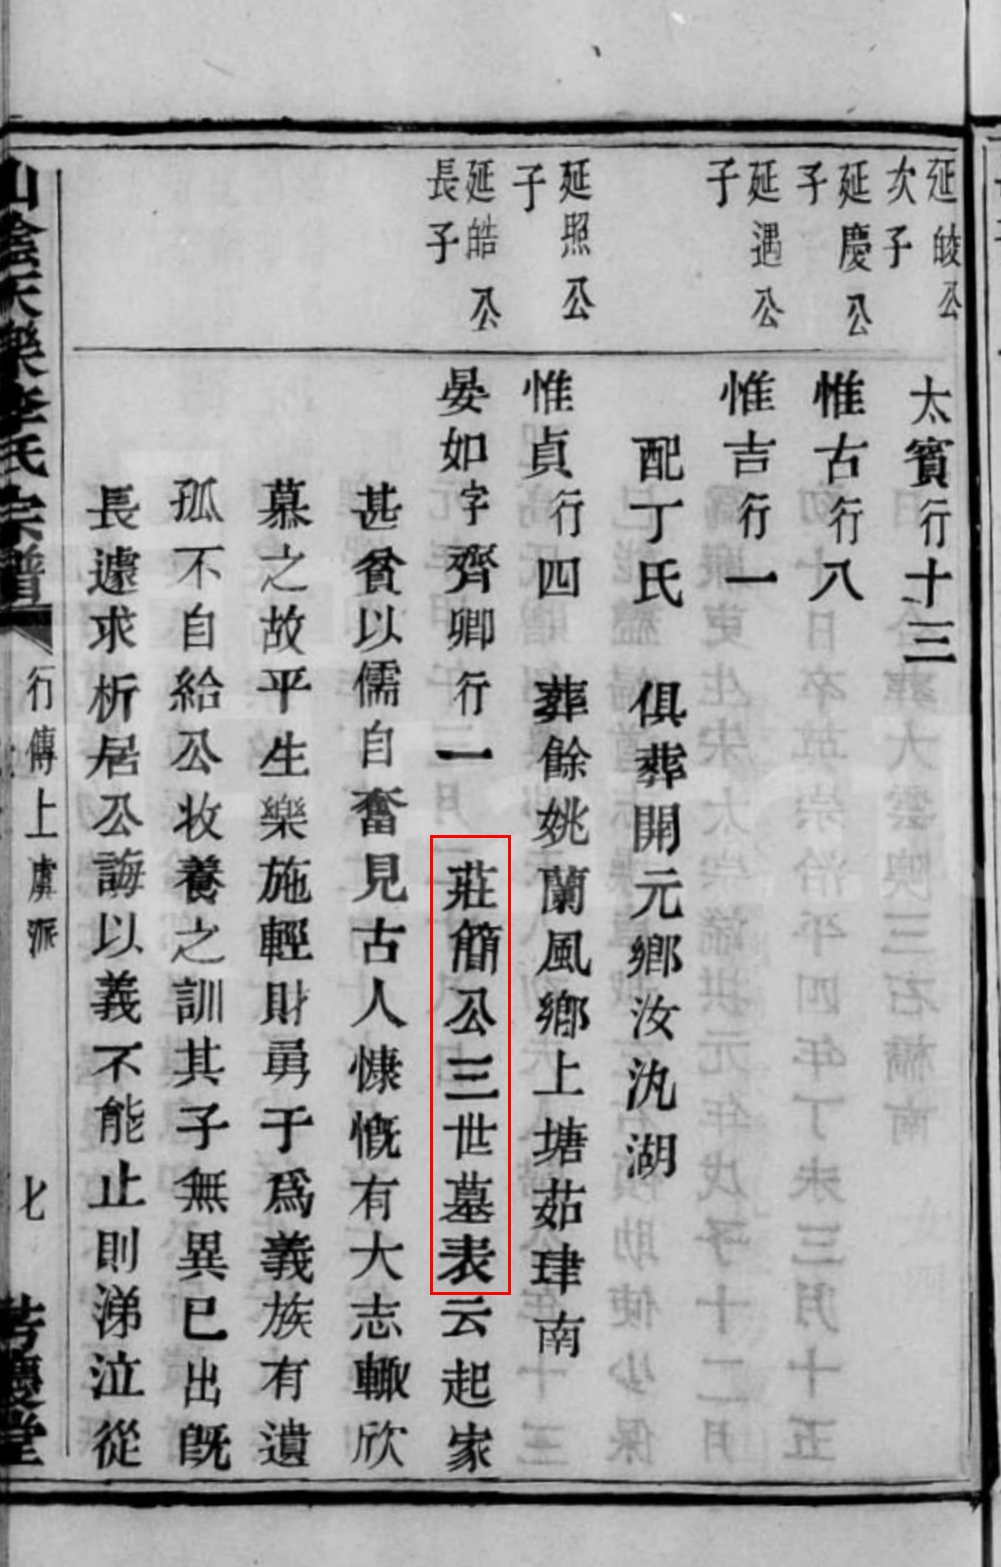 延皎公
次子
太賓行十三
延慶公
子
惟古行八
延遇公
子
惟吉行一
配丁氏 俱葬開元鄉汝氿湖
延照公
子
惟貞行四 葬餘姚蘭風鄉上塘茹肂南
延皓公
長子
晏如字齊卿行一 莊簡公三世墓表云起家
甚貧以儒自奮見古人慷慨有大志輙欣
慕之故平生樂施輕財勇于爲義族有遺
孤不自給公收養之訓其子無異已出旣
長遽求析居公誨以義不能止則涕泣從
山陰天樂李氏宗譜
行傳上虞派
七